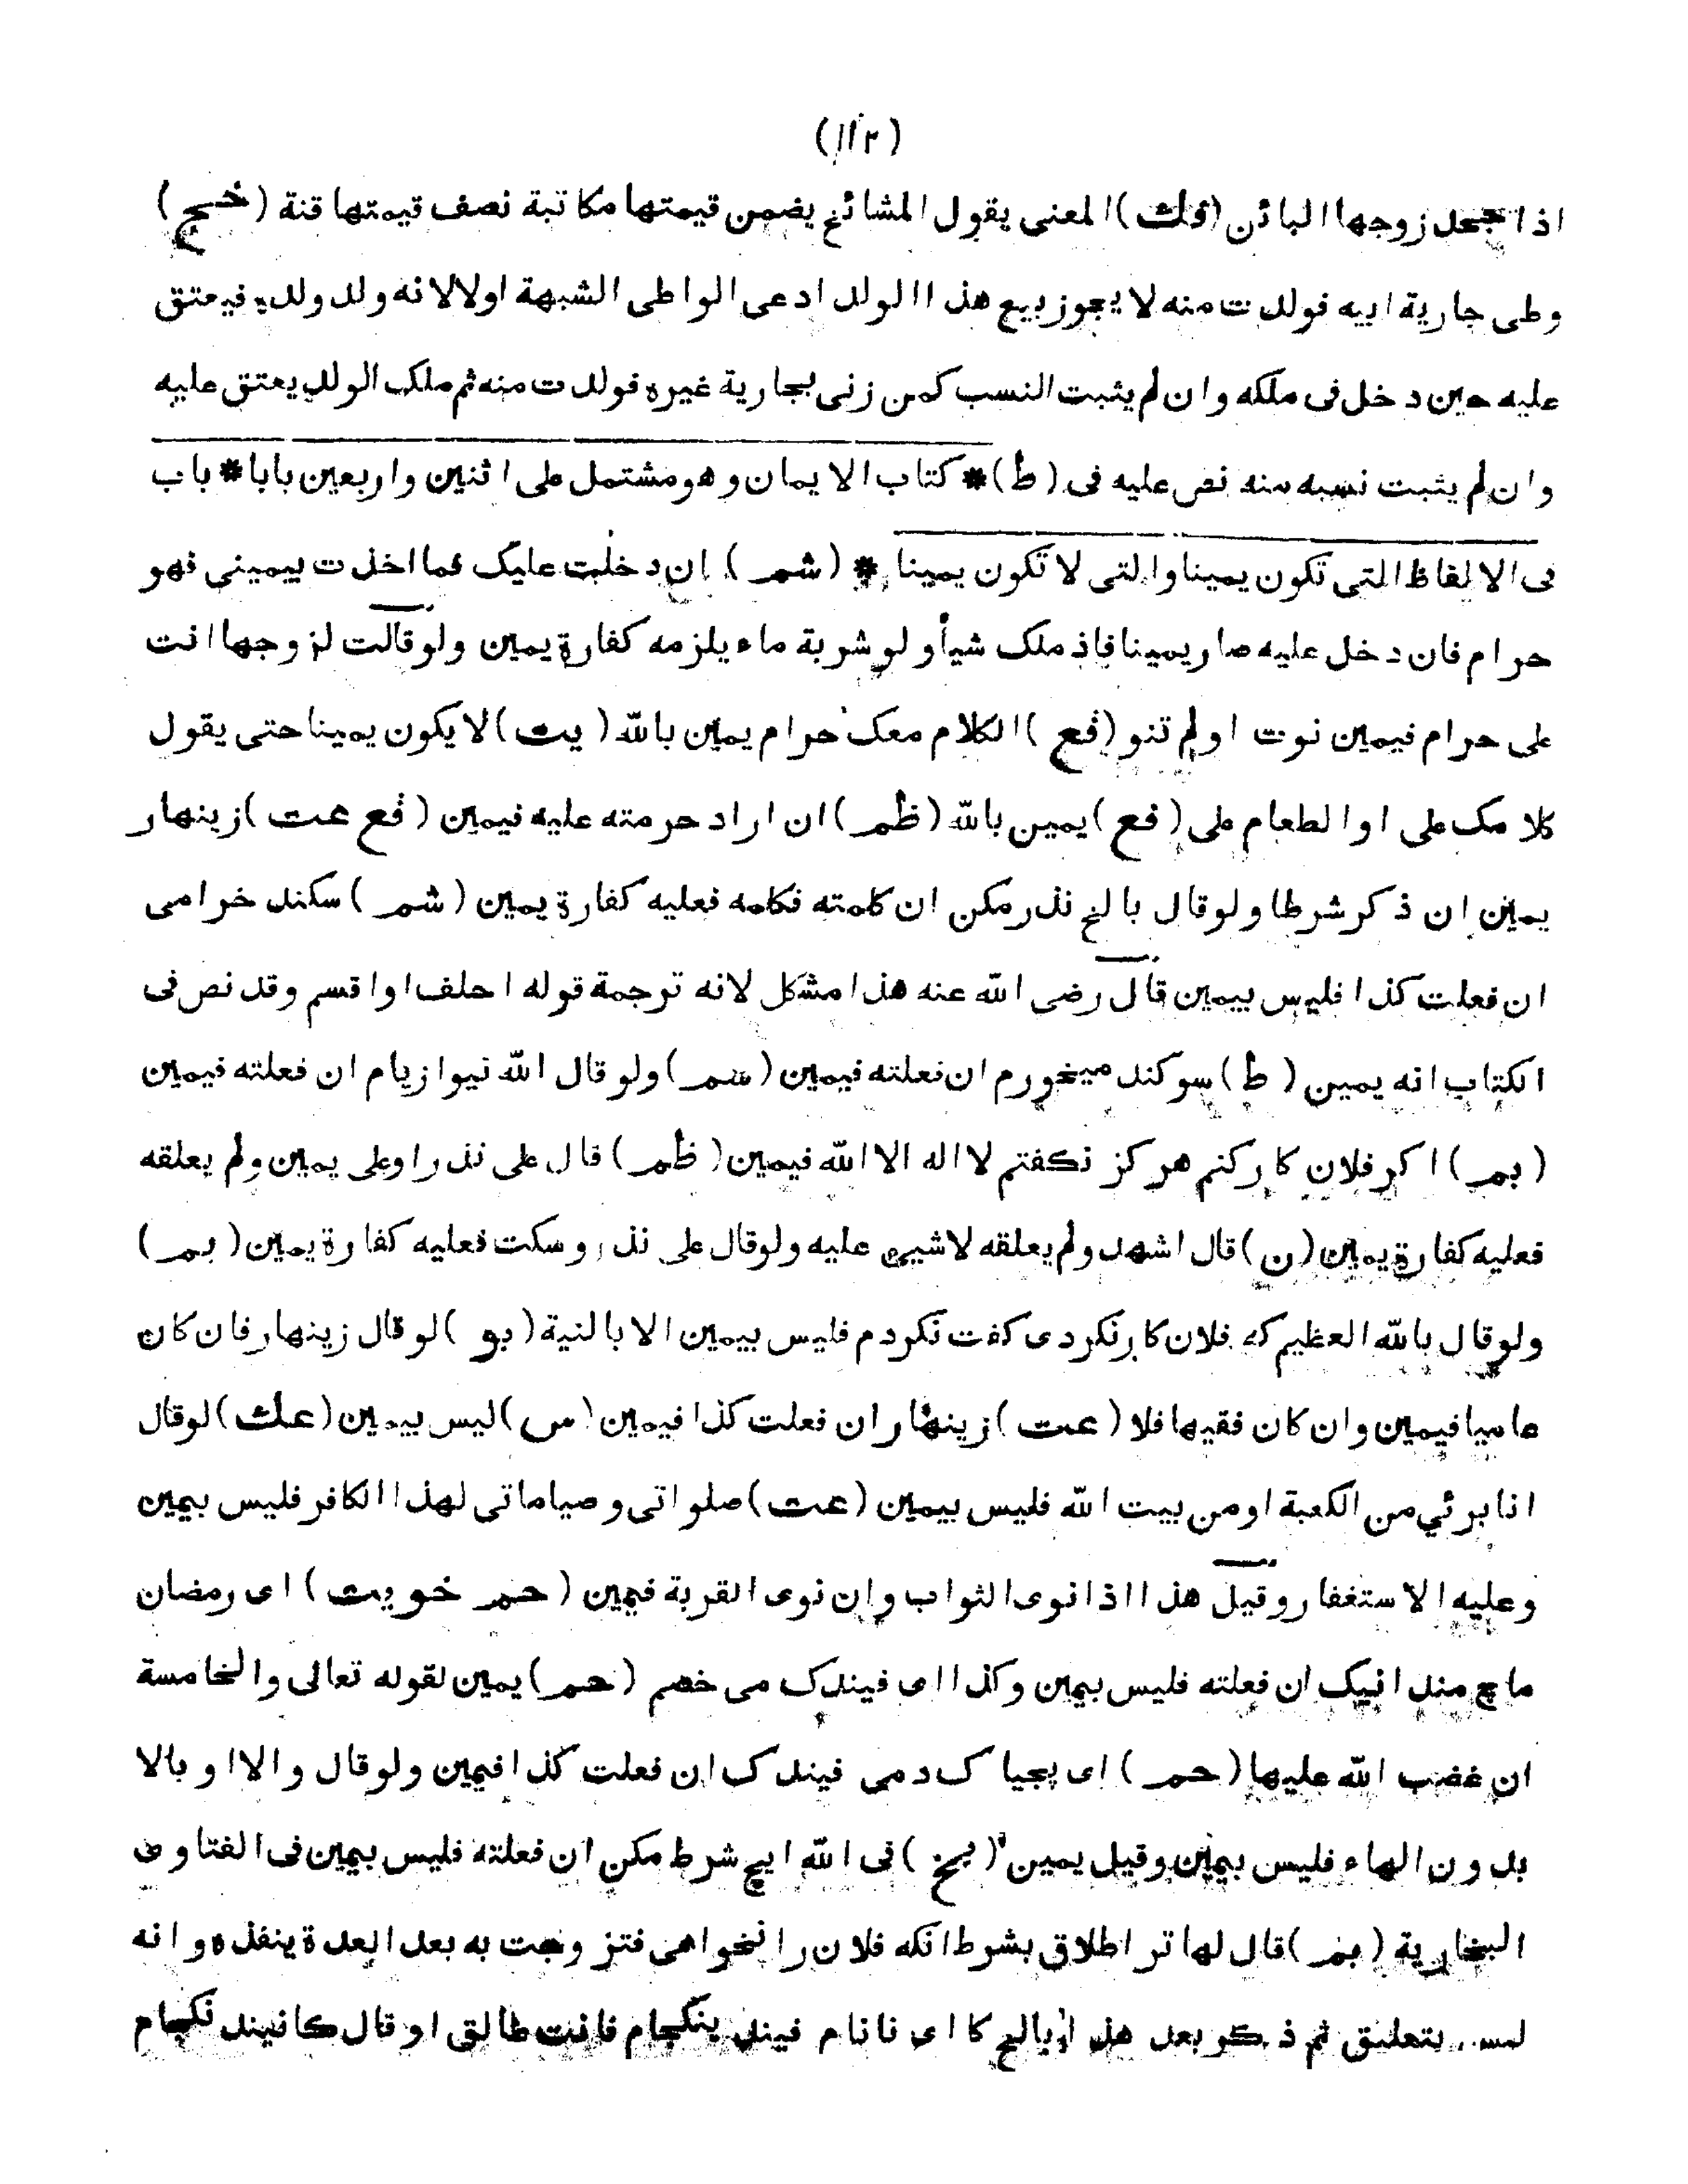 (١١٢)
اذا جعل زوجها البائن (فك) المعنى يقول المشائخ يضمن قيمتها مكاتبة نصف قيمتها قنة (خج)
وطى جارية ابيه فولدت منه لا يجوز بيع هذا الولد ادعى الواطى الشبهة اولا لانه ولد ولده فيعتق
عليه حين دخل فى ملكه وان لم يثبت النسب كمن زنى بجارية غيره فولدت منه ثم ملك الولد يعتق عليه
وان لم يثبت نسبه منه نص عليه فى (ط) * كتاب الايمان وهو مشتمل على اثنين واربعين بابا * باب
فى الالفاظ التى تكون يمينا والتى لا تكون يمينا * (شم) ان دخلت عليك فما اخذت بيمينى فهو
حرام فان دخل عليه صار يمينا فاذ ملك شيأ ولو شربة ماء يلزمه كفارة يمين ولو قالت لزوجها انت
على حرام فيمين نوت اولم تنو (فع) الكلام معك حرام يمين بالله (يت) لا يكون يمينا حتى يقول
كلامك على او الطعام على (فع) يمين بالله (ظم) ان اراد حرمته عليه فيمين (فع عت) زينهار
يمين ان ذكر شرطا ولو قال بالخ نذر مكن ان كلمته فكلمه فعليه كفارة يمين (شم) سكند خرامى
ان فعلت كذا فليس بيمين قال رضى الله عنه هذا مشكل لانه ترجمة قوله احلف او اقسم وقد نص فى
الكتاب انه يمين (ط) سوكند ميخورم ان فعلته فيمين (سم) ولو قال الله نيوازيام ان فعلته فيمين
(بم) اكر فلان كار كنم هر كز نكفتم لا اله الا الله فيمين (ظم) قال على نذر او على يمين ولم يعلقه
فعليه كفارة يمين (ن) قال اشهد ولم يعلقه لا شيئ عليه ولو قال على نذر وسكت فعليه كفارة يمين (بم)
ولو قال بالله العظيم كه فلان كار نكردى كفت نكردم فليس بيمين الا بالنية (بو) لو قال زينهار فان كان
عاميا فيمين وان كان فقيها فلا (عت) زينهار ان فعلت كذا فيمين (س) ليس بيمين (عك) لو قال
انا برئي من الكعبة او من بيت الله فليس بيمين (عت) صلواتى وصياماتى لهذا الكافر فليس بيمين
وعليه الاستغفار وقيل هذا اذا نوى الثواب وان نوى القربة فيمين (حم خويت) اى رمضان
ماچ مندانيك ان فعلته فليس بيمين وكذا اى فيندك مى خصم (حم) يمين لقوله تعالى والخامسة
ان غضب الله عليها (حم) اى يجياك دمى فيندك ان فعلت كذا فيمين ولو قال والا او بالا
بدون الهاء فليس بيمين وقيل يمين (بخ) فى الله ايچ شرط مكن ان فعلته فليس بيمين فى الفتاوى
البخارية (بم) قال لها ترا طلاق بشرط انكه فلان را نخواهى فتزوجت به بعد العدة ينفذه وانه
ليس بتعليق ثم ذكر بعد هذا كا اى نانام فيند فانت طالق او قال كانيند نكچام